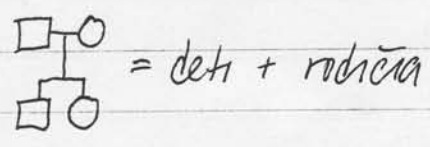 = deti + rodičia